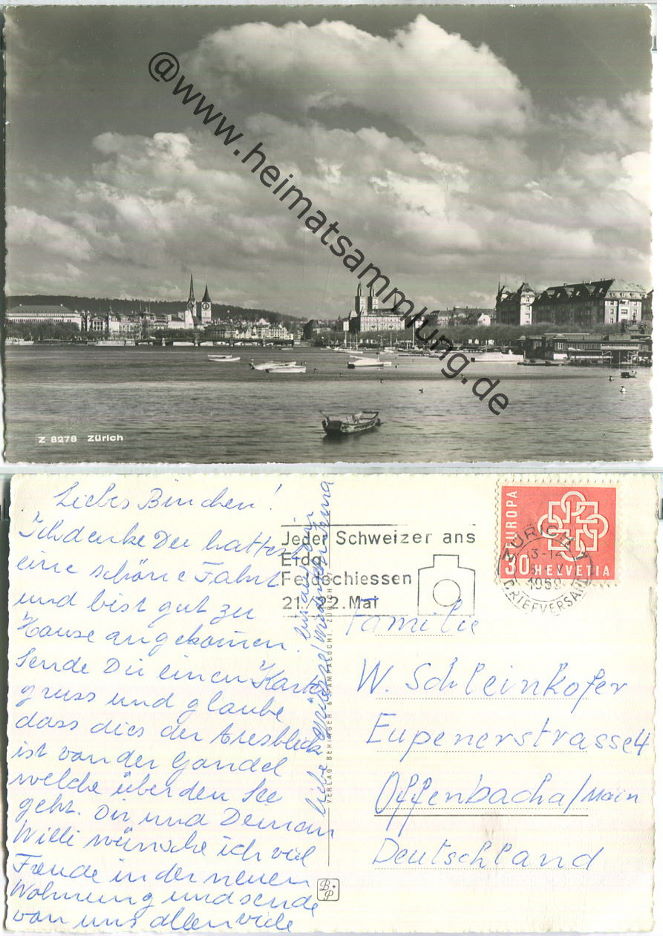 @www.heimatsammlung.de
Z 8278 Zürich
Liebes Binchen!
Ich denke Du hattest
eine schöne Fahrt
und bist gut zu
Hause angekommen.
Sende Dir einen Karten
gruss und glaube
dass dies der Ausblick
ist von der Gondel
welche über den See
geht. Dir und Deinem
Willi wünsche ich viel
Freude in der neuen
Wohnung und sende
von uns allen viele
liebe Grüsse
Jeder Schweizer ans
Eidg
Feldschiessen
21./22. Mai
EUROPA
30 HELVETIA
ZÜRICH 1
BRIEFVERSAND
Familie
W. Schleinkofer
Eupenerstrasse 4
Offenbach a/Main
Deutschland